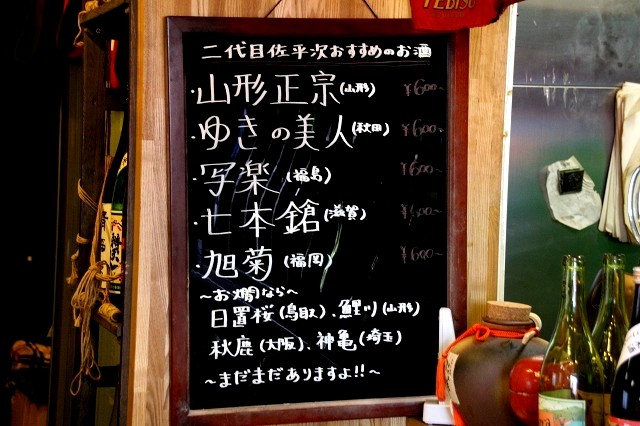 YEBISU
二代目佐平次おすすめのお酒
・山形正宗(山形) ¥600-
・ゆきの美人(秋田) ¥600-
・写楽(福島) ¥600-
・七本鎗(滋賀) ¥600-
・旭菊(福岡) ¥600-
〜お燗なら〜
日置桜(鳥取)、鯉川(山形)
秋鹿(大阪)、神亀(埼玉)
〜まだまだありますよ!!〜